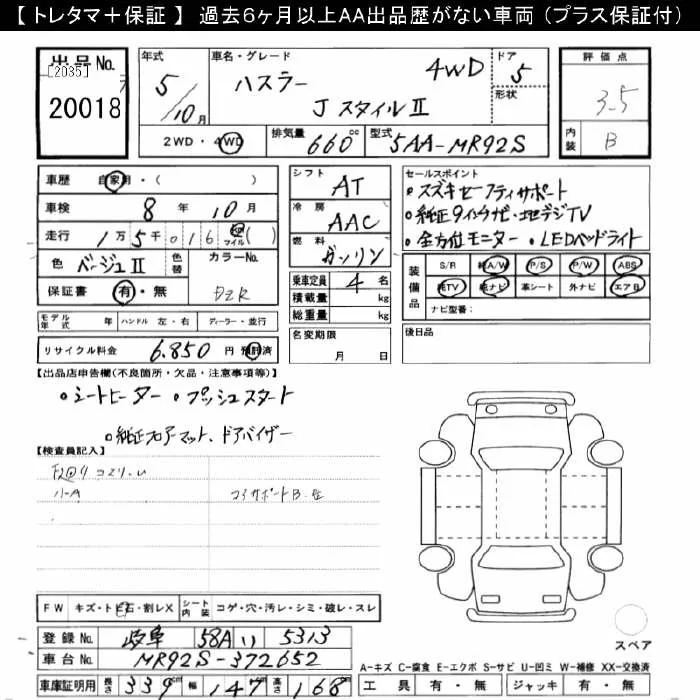 【 トレタマ＋保証 】 過去６ヶ月以上ＡＡ出品歴がない車両（プラス保証付）
出品No.
[2035]
20018
年式
5
/10月
車名・グレード
ハスラー 4WD
J スタイルⅡ
ドア
5
形状
2WD・4WD
排気量 660 cc
型式 5AA-MR92S
評価点
3.5
内装 B
車歴 自家用・( )
車検 8 年 10 月
走行 1万5千016 km マイル ( )
色 ベージュⅡ
色替
カラーNo.
DZR
保証書 有・無
モデル年式 年 ハンドル 左・右 ディーラー・並行
リサイクル料金 6.850 円 預託済
シフト AT
冷房 AAC
燃料 ガソリン
乗車定員 4 名
積載量 kg
総重量 kg
名変期限
月 日
セールスポイント
●スズキセーフティサポート
●純正9インチナビ・地デジTV
●全方位モニター ●LEDヘッドライト
装備品
S/R 純A/W P/S P/W ABS
純TV 純ナビ 革シート 外ナビ エアB
ナビ型番：
後日品
【出品店申告欄(不良箇所・欠品・注意事項等)】
●シートヒーター ●プッシュスタート
●純正フロアマット、ドアバイザー
【検査員記入】
ハーA
コアサポートB・
FW キズ・ト石・割レX シート内装 コゲ・穴・汚レ・シミ・破レ・スレ
登録No. 岐阜 58A い 5313
車台No. MR92S-372652
車庫証明用 長さ 339 幅 147 高さ 168
スペア
A-キズ C-腐食 E-エクボ S-サビ U-凹ミ W-補修 XX-交換済
工具 有・無 ジャッキ 有・無